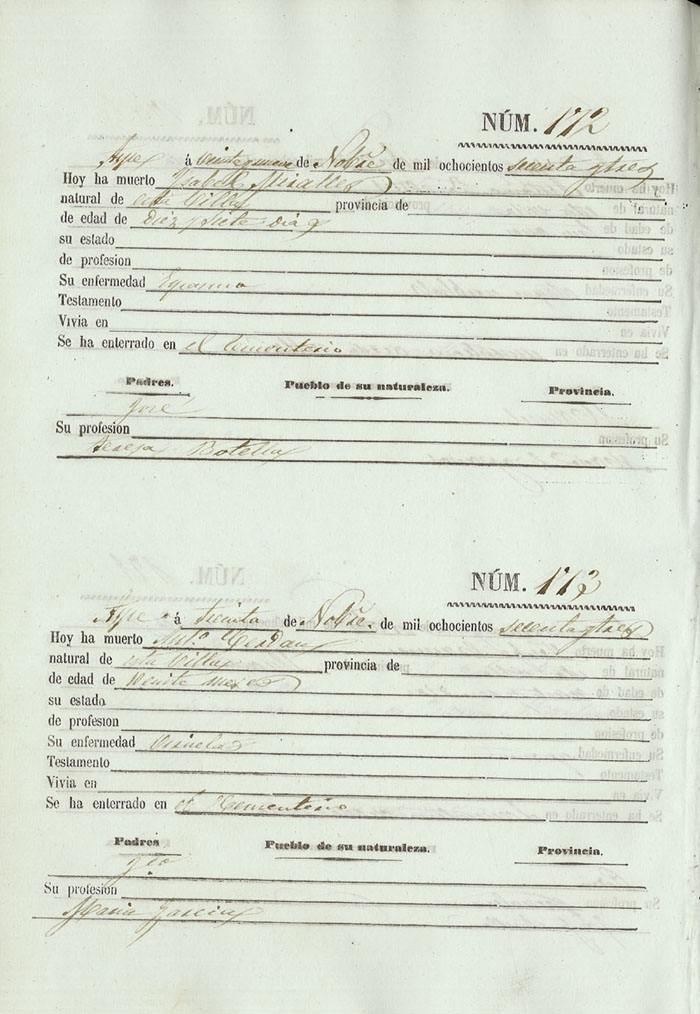 NÚM. 172
Aspe á veintinueve de Nobre de mil ochocientos sesenta y tres
Hoy ha muerto Isabel Miralles
natural de esta Villa provincia de
de edad de Diez y siete dias
su estado
de profesion
Su enfermedad
Testamento
Vivia en
Se ha enterrado en el Cementerio
Padres. Pueblo de su naturaleza. Provincia.
José
Su profesion
Teresa Botella
NÚM. 173
Aspe á treinta de Nobre. de mil ochocientos sesenta y tres
Hoy ha muerto Anto. Cerdan
natural de esta Villa provincia de
de edad de Veinte meses
su estado
de profesion
Su enfermedad Viruelas
Testamento
Vivia en
Se ha enterrado en el Cementerio
Padres Pueblo de su naturaleza. Provincia.
Su profesion
Maria Garcia